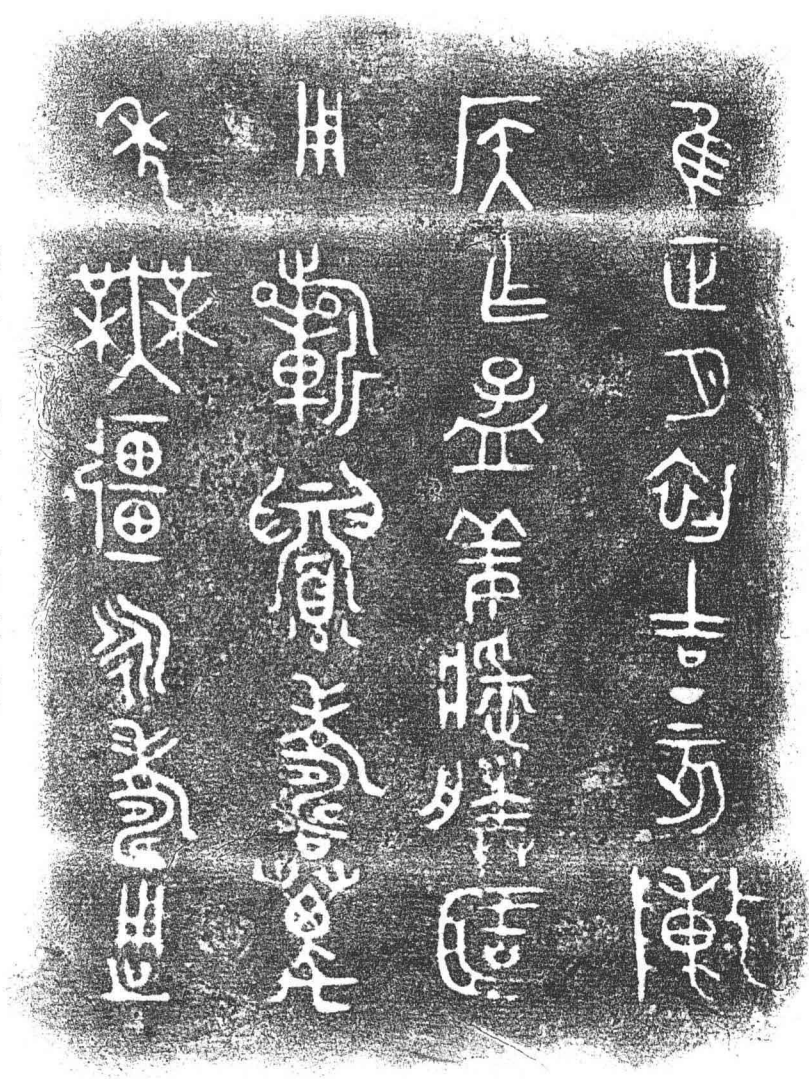 隹正月初吉丁亥陳
侯乍孟姜媵簠
用祈眉壽萬
年無疆永壽用之